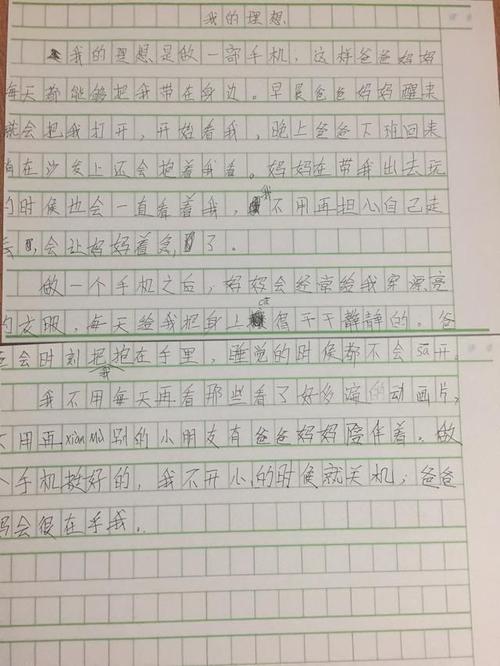 我的理想
我的理想是做一部手机,这样爸爸妈妈
每天都能够把我带在身边。早晨爸爸妈妈醒来
就会把我打开,开始看我,晚上爸爸下班回来
在沙发上还会抱着我看。妈妈在带我出去玩
的时候也会一直看着我,我不用再担心自己走
丢,会让妈妈着急了。
做一个手机之后,妈妈会经常给我穿漂亮
的衣服,每天给我把身上擦得干干静静的。爸
爸会时刻把我抱在手里,睡觉的时候都不会sā开。
我不用每天再看那些看了好多遍的动画片,
不用再xiàn mù别的小朋友有爸爸妈妈陪伴着。做
个手机挺好的,我不开心的时候就关机;爸爸
妈会很在乎我.